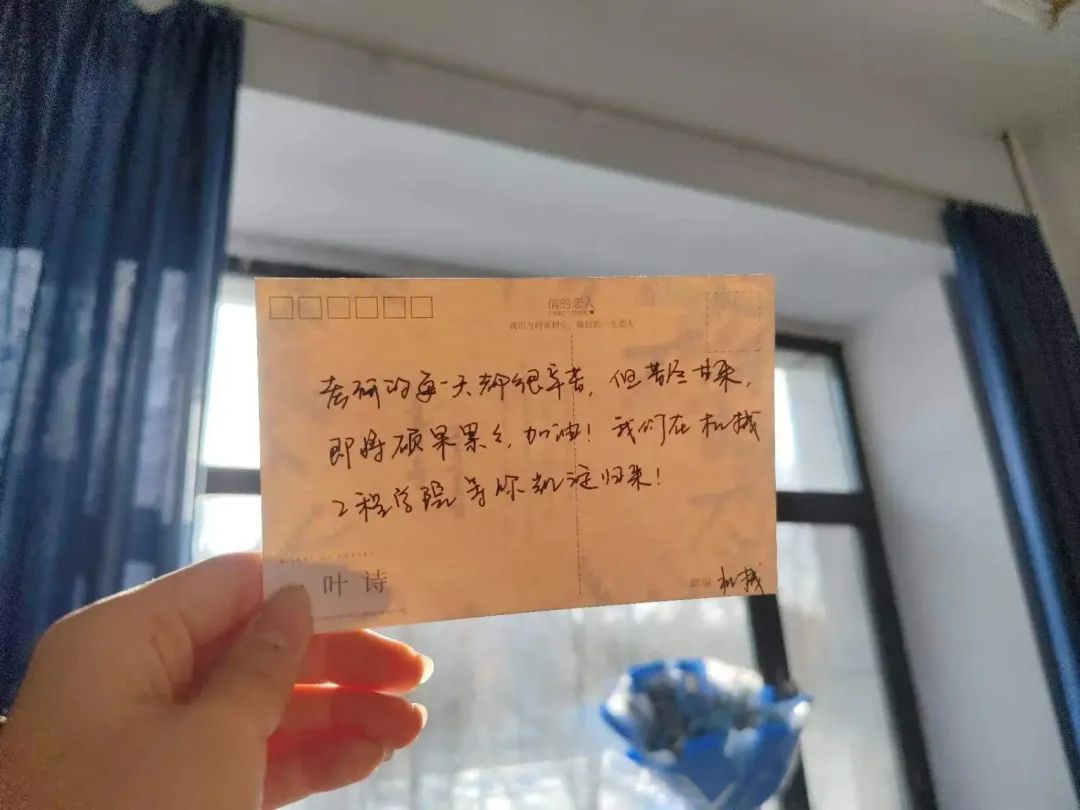 信的恋人
考研的每一天都很辛苦,但苦尽甘来,
即将硕果累々,加油!我们在机械
工程学院等你凯旋归来!
叶诗
邮编 机械